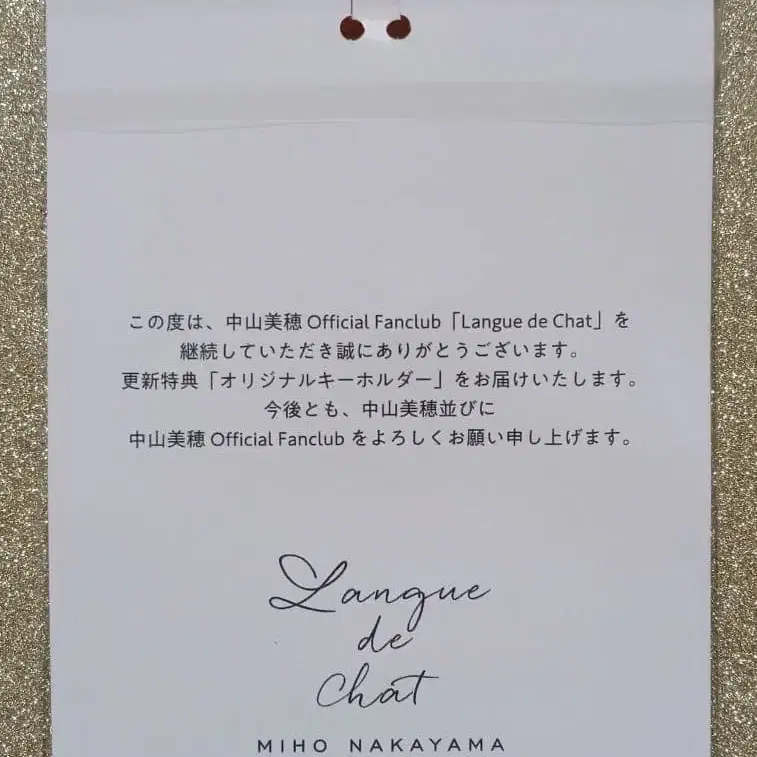 この度は、中山美穂 Official Fanclub「Langue de Chat」を
継続していただき誠にありがとうございます。
更新特典「オリジナルキーホルダー」をお届けいたします。
今後とも、中山美穂並びに
中山美穂 Official Fanclub をよろしくお願い申し上げます。
Langue
de
chat
MIHO NAKAYAMA